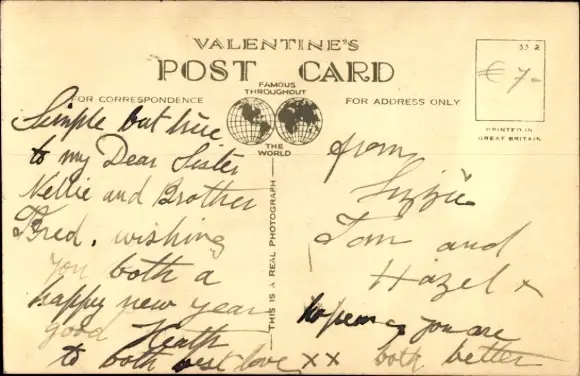 VALENTINE'S
POST CARD
FAMOUS
THROUGHOUT
THE
WORLD
FOR CORRESPONDENCE
FOR ADDRESS ONLY
33 2
€ 7-
PRINTED IN
GREAT BRITAIN
THIS IS A REAL PHOTOGRAPH
Simple but true
to my Dear Sister
Nellie and Brother
Fred. wishing
you both a
happy new year
good Heath
to both best love xx
from
Lizzie
Tom and
Hazel x
hopeing you are
both better